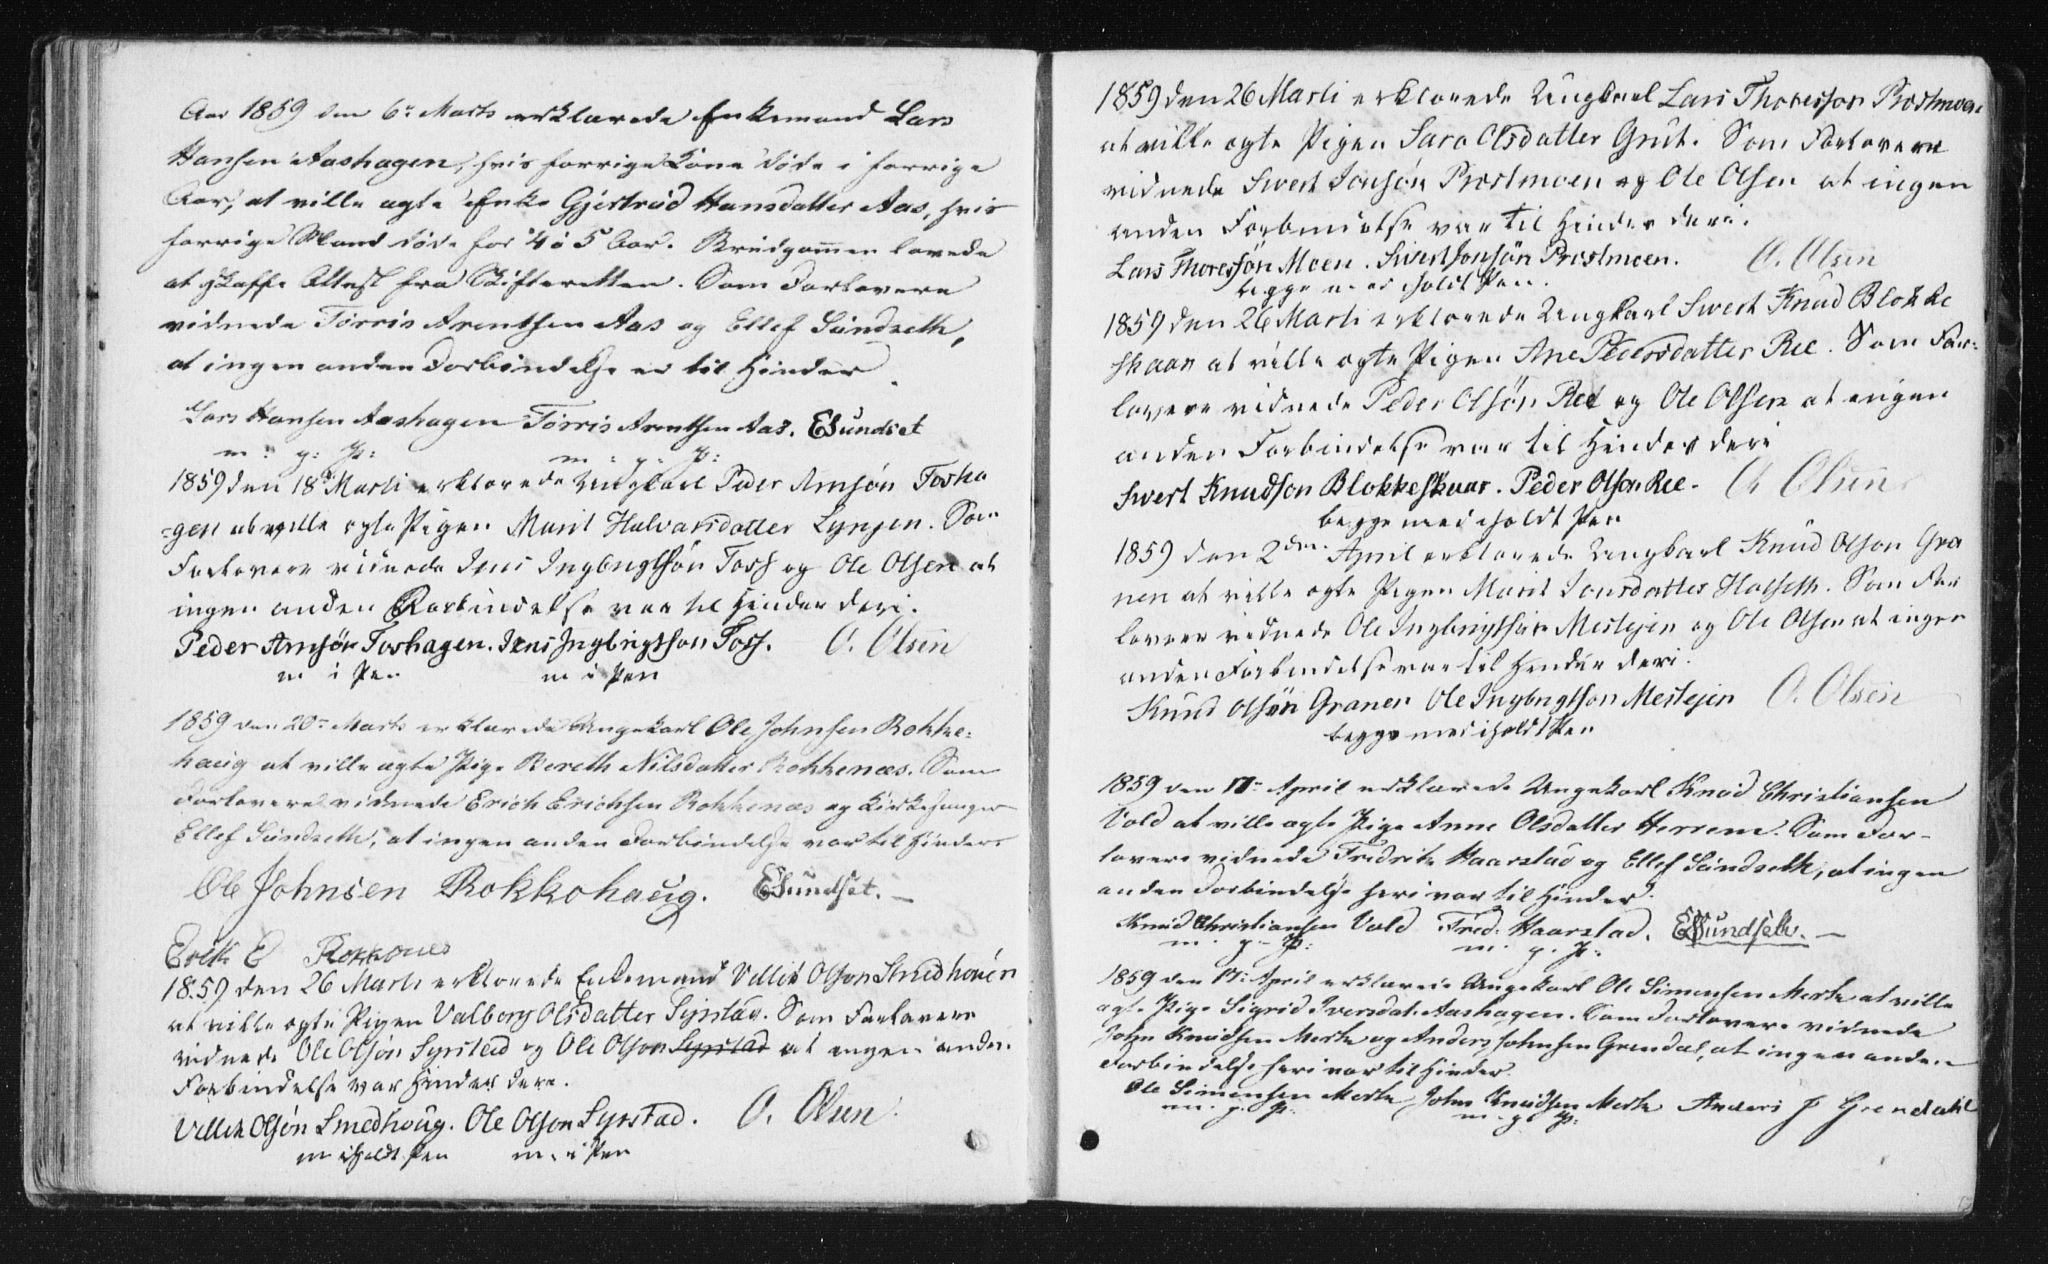 Aar 1859 den 6te Marts erklærede Enkemand Lars
Hansen Aashagen, hvis forrige Kone døde i forrige
Aar, at ville ægte Enke Gjertrud Hansdatter Aas, hvis
forrige Mand døde for 4 à 5 Aar. Brudgommen lovede
at skaffe Attest fra Skifteretten. Som Forlovere
vidnede Torris Arentsen Aas og Ellef Sundseth,
at ingen anden Forbindelse er til Hinder.
Lars Hansen Aashagen Torris Arentsen Aas. ESundset
m: p: P: m: p: P:
1859 den 18de Marti erklærede Ungkarl Peder Arnsøn Fosha
=gen at ville ægte Pigen Marit Halvorsdatter Lynjen. Som
Forlovere vidnede Jens Ingbrigtsøn Foss og Ole Olsen at
ingen anden Forbindelse var til Hinder deri.
Peder Arnsøn Foshagen. Jens Ingbrigtson Foss. O. Olsen
m i Pen m i Pen
1859 den 20de Marts erklærede Ungekarl Ole Johnsen Rokke=
haug at ville ægte Pige Bereth Nilsdatter Rokkenæs. Som
Forlovere vidnede Erich Erichsen Rokkenæs og Kirkesanger
Ellef Sundseth, at ingen anden Forbindelse var til Hinder.
Ole Johnsen Rokkohaug. ESundset.
Erik E Rokkones
1859 den 26 Marti erklærede Enkemand Villik Olson Smedhouen
at ville ægte Pigen Valborg Olsdatter Syrstad. Som Forlovere
vidnede Ole Olsøn Syrstad og Ole Olson Syrstad at engen anden
Forbindelse var Hinder dere.
Villik Olsøn Smedhoug. Ole Olson Syrstad. O. Olsen
m iholdt Pen m. i Pen
1859 den 26 Marti erklærede Ungkarl Lars Thoresson Prostmoen
at ville ægte Pigen Sara Olsdatter Grut. Som Forlovere
vidnede Sivert Jonsøn Prostmoen og Ole Olsen at ingen
anden Forbindelse var til Hinder dere.
Lars Thoressøn Moen. Sivert Jonsøn Prostmoen. O. Olsen
begge med iholdt Pen.
1859 den 26 Marti erklærede Ungkarl Sivert Knud Blokke
skaar at ville ægte Pigen Ane Pedersdatter Ree. Som For=
lovere vidnede Peder Olsøn Ree og Ole Olsen at engen
anden Forbindelse var til Hinder deri
Sivert Knudson Blokkeskaar. Peder Olson Ree. O. Olsen
begge med iholdt Pen
1859 den 2den April erklærede Ungkarl Knud Olson Gra
nen at ville ægte Pigen Marit Jonsdatter Halseth. Som For
lovere vidnede Ole Ingbrigtsøn Meslejen og Ole Olsen at ingen
anden Forbindelse var til Hinder deri.
Knud Olsøn Granen Ole Ingbrigtson Meslejen O. Olsen
begge med iholdt Pen
1859 den 17de April erklærede Ungekarl Knud Christiansen
Vold at ville ægte Pige Anne Olsdatter Herrem. Som For-
lovere vidnede Fredrik Haarstad og Ellef Sundseth, at ingen
anden Forbindelse heri var til Hinder.
Knud Christiansen Vold Fred. Haarstad. ESundseth.
m. p. P: m. p. P:
1859 den 17de April erklærede Ungekarl Ole Simensen Merk at ville
ægte Pige Sigrid Iversdat. Aashagen. Som Forlovere vidnede
John Knudsen Merk og Anders Johnsen Grendal, at ingen anden
Forbindelse heri var til Hinder.
Ole Simensen Merk John Knudsen Merk Anders J Grendahl
m. p. P. m. p. P: